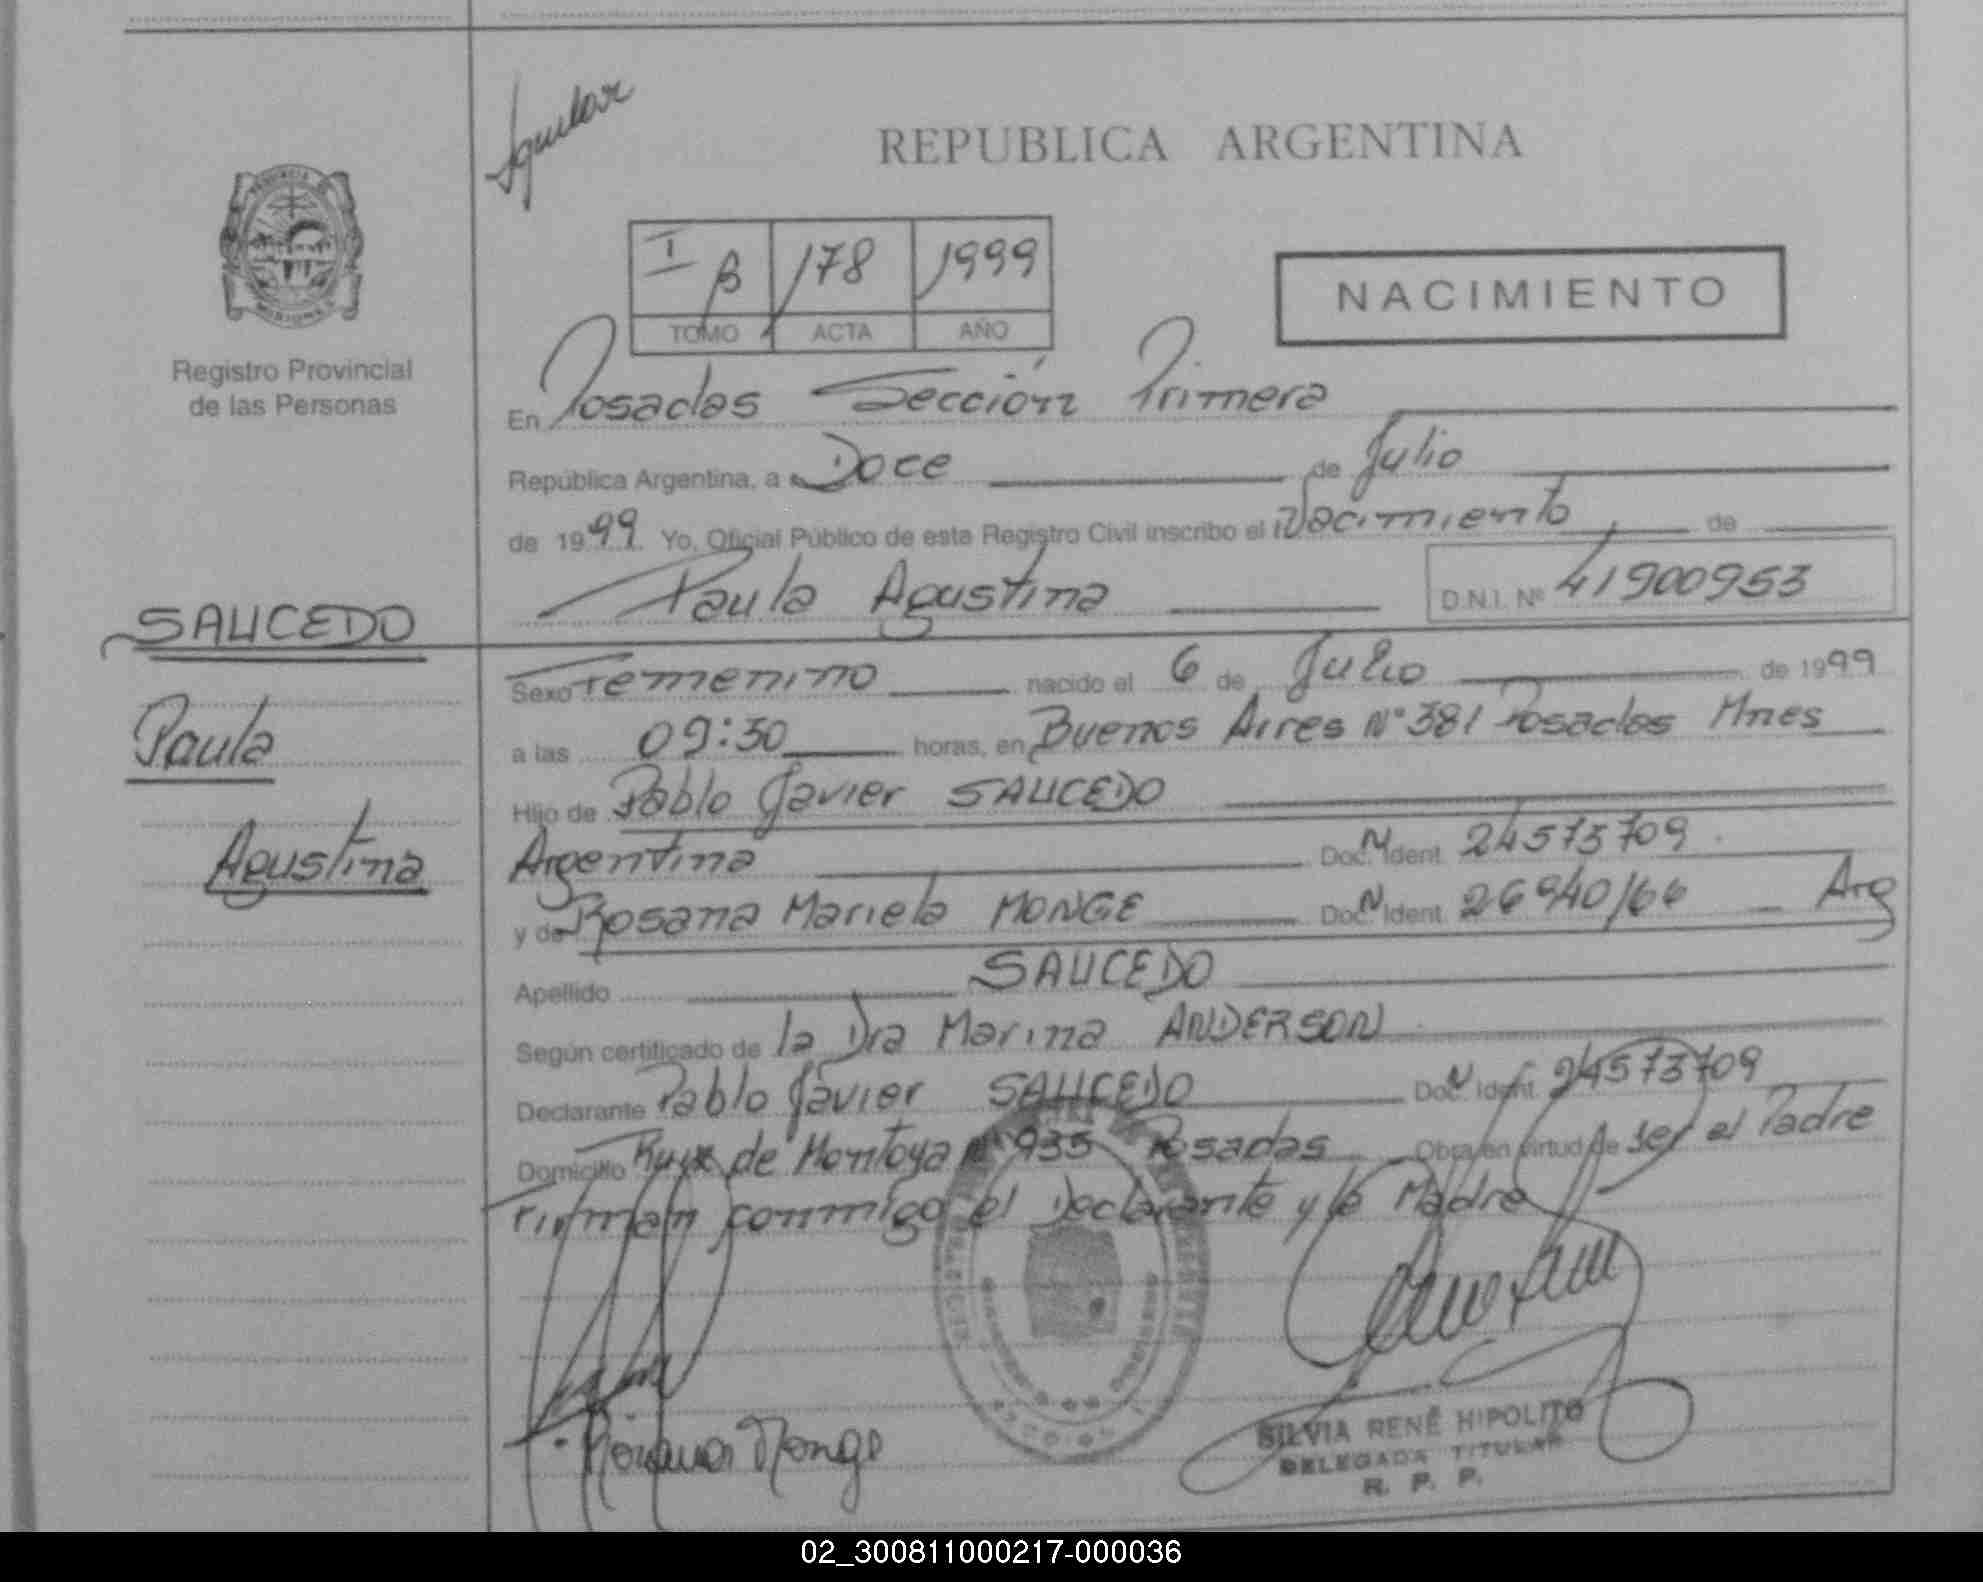 Aguilar
REPUBLICA ARGENTINA
I B 178 1999
TOMO ACTA AÑO
NACIMIENTO
Registro Provincial
de las Personas
En Posadas Sección Primera
República Argentina, a Doce de Julio
de 1999 Yo, Oficial Público de esta Registro Civil inscribo el Nacimiento de
Paula Agustina D.N.I. Nº 41900953
SAUCEDO
Paula
Agustina
Sexo Femenino nacido el 6 de Julio de 1999
a las 09:30 horas, en Buenos Aires Nº 381 Posadas Mnes
Hijo de Pablo Javier SAUCEDO
Argentina Doc. N Ident. 24573709
y de Rosana Mariela MONGE Doc. N Ident. Arg
Apellido SAUCEDO
Según certificado de la Dra Marina ANDERSON
Declarante Pablo Javier SAUCEDO Doc. N Ident. 24573709
Domicilio Ruiz de Montoya nº 935 Posadas Obra en virtud de ser el Padre
Firman conmigo el Declarante y la Madre
Rosana Monge
SILVIA RENÉ HIPOLITO
DELEGADA TITULAR
R. P. P.
02_300811000217-000036